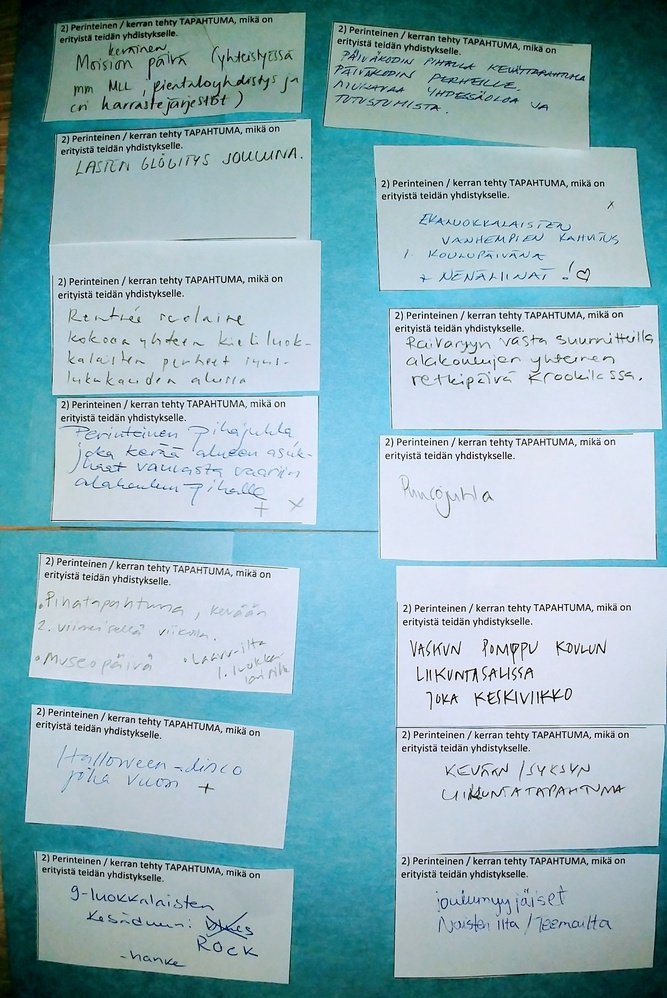 2) Perinteinen / kerran tehty TAPAHTUMA, mikä on
erityistä teidän yhdistykselle.
keväinen
Moision päivä (yhteistyössä
mm MLL, pientaloyhdistys ja
eri harrastejärjestöt)
2) Perinteinen / kerran tehty TAPAHTUMA, mikä on
erityistä teidän yhdistykselle.
LASTEN GLÖGITYS JOULUNA.
2) Perinteinen / kerran tehty TAPAHTUMA, mikä on
erityistä teidän yhdistykselle.
Rentrée scolaire
kokoaa yhteen kieliluok-
kalaisten perheet syys-
lukukauden alussa
2) Perinteinen / kerran tehty TAPAHTUMA, mikä on
erityistä teidän yhdistykselle.
Perinteinen pihajuhla
joka kerää alueen asuk-
kaat vauvasta vaariin
alakoulun pihalle
+ x
2) Perinteinen / kerran tehty TAPAHTUMA, mikä on
erityistä teidän yhdistykselle.
• Pihatapahtuma, kevään
2. viimeisellä viikolla.
• Museopäivä • Laavu-ilta
1. luokka-
2) Perinteinen / kerran tehty TAPAHTUMA, mikä on
erityistä teidän yhdistykselle.
Halloween-disco
joka vuosi +
2) Perinteinen / kerran tehty TAPAHTUMA, mikä on
erityistä teidän yhdistykselle.
9-luokkalaisten
kesäduuni
ROCK
-hanke
2) Perinteinen / kerran tehty TAPAHTUMA, mikä on
erityistä teidän yhdistykselle.
PÄIVÄKODIN PIHALLA KEVÄTTAPAHTUMA
PÄIVÄKODIN PERHEILLE.
MUKAVAA YHDESSÄOLOA JA
TUTUSTUMISTA.
2) Perinteinen / kerran tehty TAPAHTUMA, mikä on
erityistä teidän yhdistykselle.
x
EKALUOKKALAISTEN
VANHEMPIEN KAHVITUS
1. KOULUPÄIVÄNÄ
+ NENÄLIINAT! ♡
2) Perinteinen / kerran tehty TAPAHTUMA, mikä on
erityistä teidän yhdistykselle.
Raivaryyn vasta suunnitteilla
alakoulujen yhteinen
retkipäivä Krookilassa.
2) Perinteinen / kerran tehty TAPAHTUMA, mikä on
erityistä teidän yhdistykselle.
Puurojuhla
2) Perinteinen / kerran tehty TAPAHTUMA, mikä on
erityistä teidän yhdistykselle.
VASKUN POMPPU KOULUN
LIIKUNTASALISSA
JOKA KESKIVIIKKO
2) Perinteinen / kerran tehty TAPAHTUMA, mikä on
erityistä teidän yhdistykselle.
KEVÄÄN / SYKSYN
LIIKUNTATAPAHTUMA
2) Perinteinen / kerran tehty TAPAHTUMA, mikä on
erityistä teidän yhdistykselle.
joulumyyjäiset
Naisten ilta / Teemailta